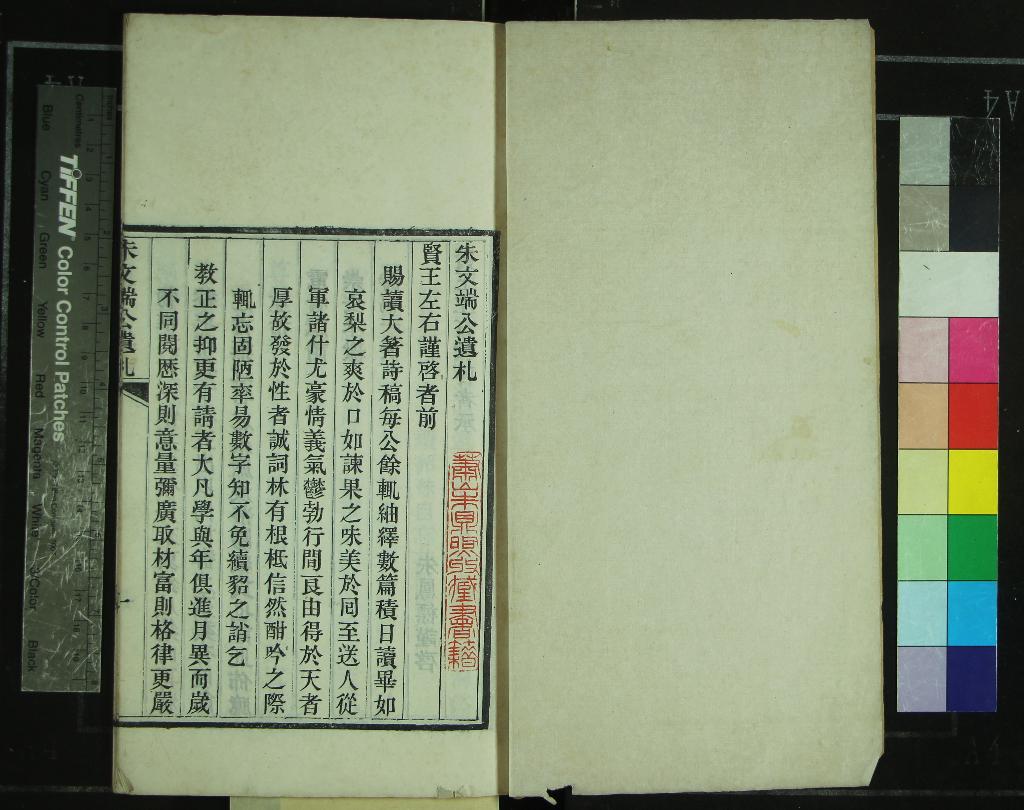 朱文端公遺札
賢王左右謹啓者前
賜讀大著詩稿每公餘輒紬繹數篇積日讀畢如
哀梨之爽於口如諫果之味美於回至送人從
軍諸什尤豪情義氣鬱勃行間良由得於天者
厚故發於性者誠詞林有根柢信然酣吟之際
輒忘固陋率易數字知不免續貂之誚乞
教正之抑更有請者大凡學與年俱進月異而歲
不同閱歷深則意量彌廣取材富則格律更嚴
朱文端公遺札
一
蕭山朱鼎煦收藏書籍
TIFFEN Color Control Patches
Centimetres
Blue
Cyan
Green
Yellow
Red
Magenta
White
3/Color
Black
A4